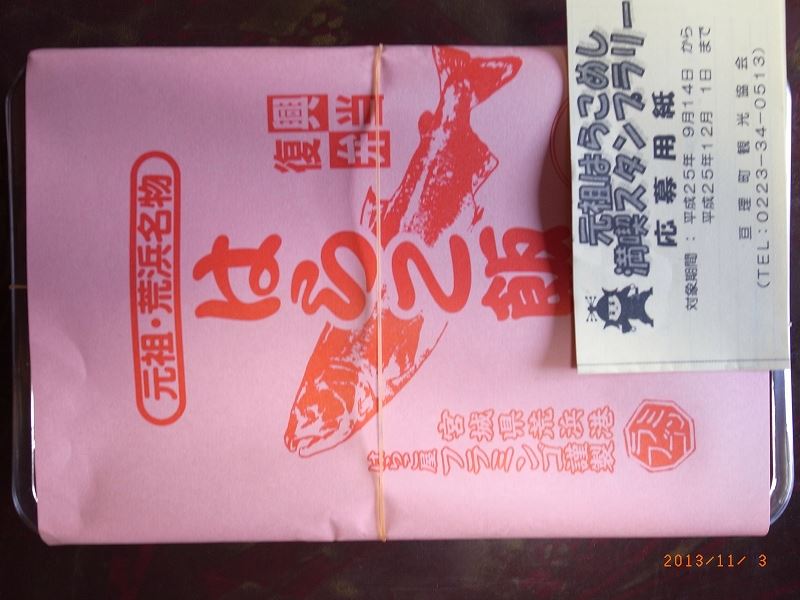 元祖・荒浜名物
復興
弁当
はらこ飯
宮城県荒浜港
はらこ屋フラミンゴ謹製
フラミンゴ
元祖はらこめし
満喫スタンプラリー
応募用紙
対象期間：平成25年 9月14日 から
平成25年12月 1日 まで
亘理町観光協会
(TEL:0223-34-0513)
2013/11/ 3